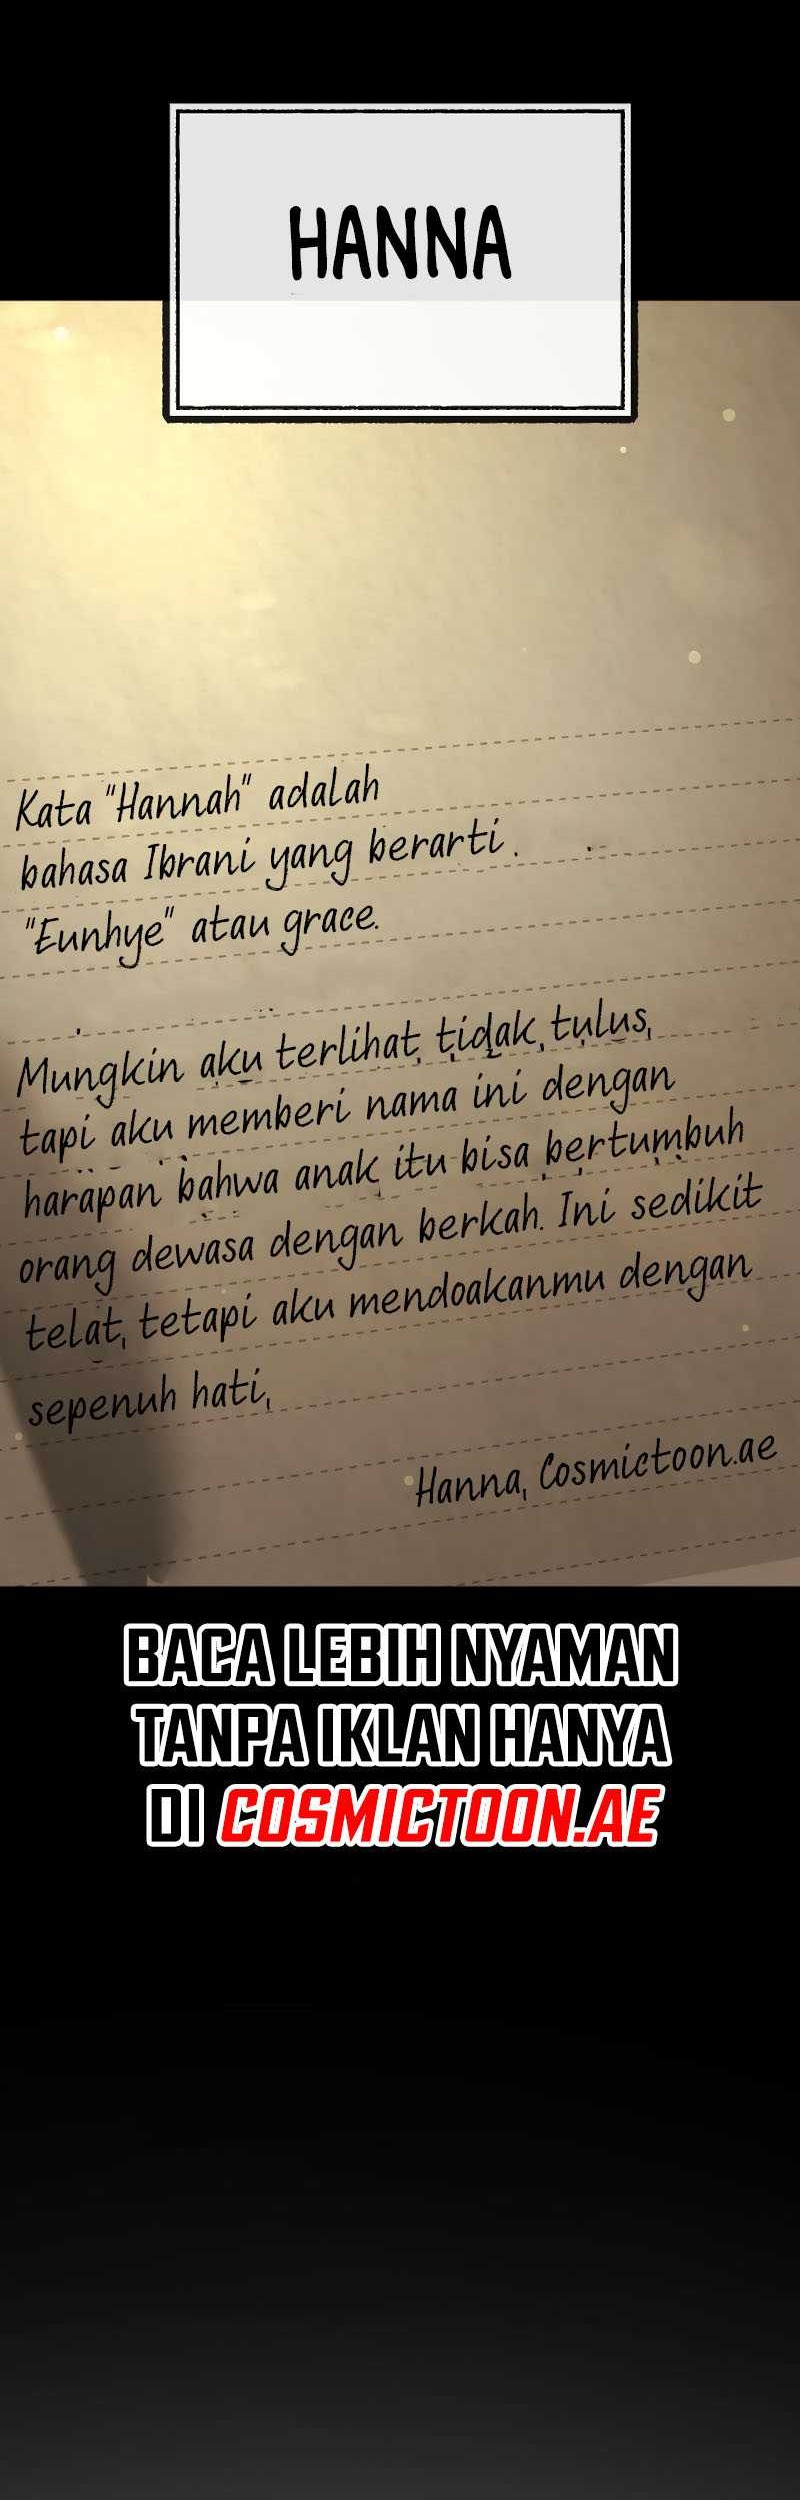 HANNA
Kata "Hannah" adalah
bahasa Ibrani yang berarti
"Eunhye" atau grace.
Mungkin aku terlihat tidak tulus,
tapi aku memberi nama ini dengan
harapan bahwa anak itu bisa bertumbuh
orang dewasa dengan berkah. Ini sedikit
telat, tetapi aku mendoakanmu dengan
sepenuh hati,
Hanna, Cosmictoon.ae
BACA LEBIH NYAMAN
TANPA IKLAN HANYA
DI COSMICTOON.AE